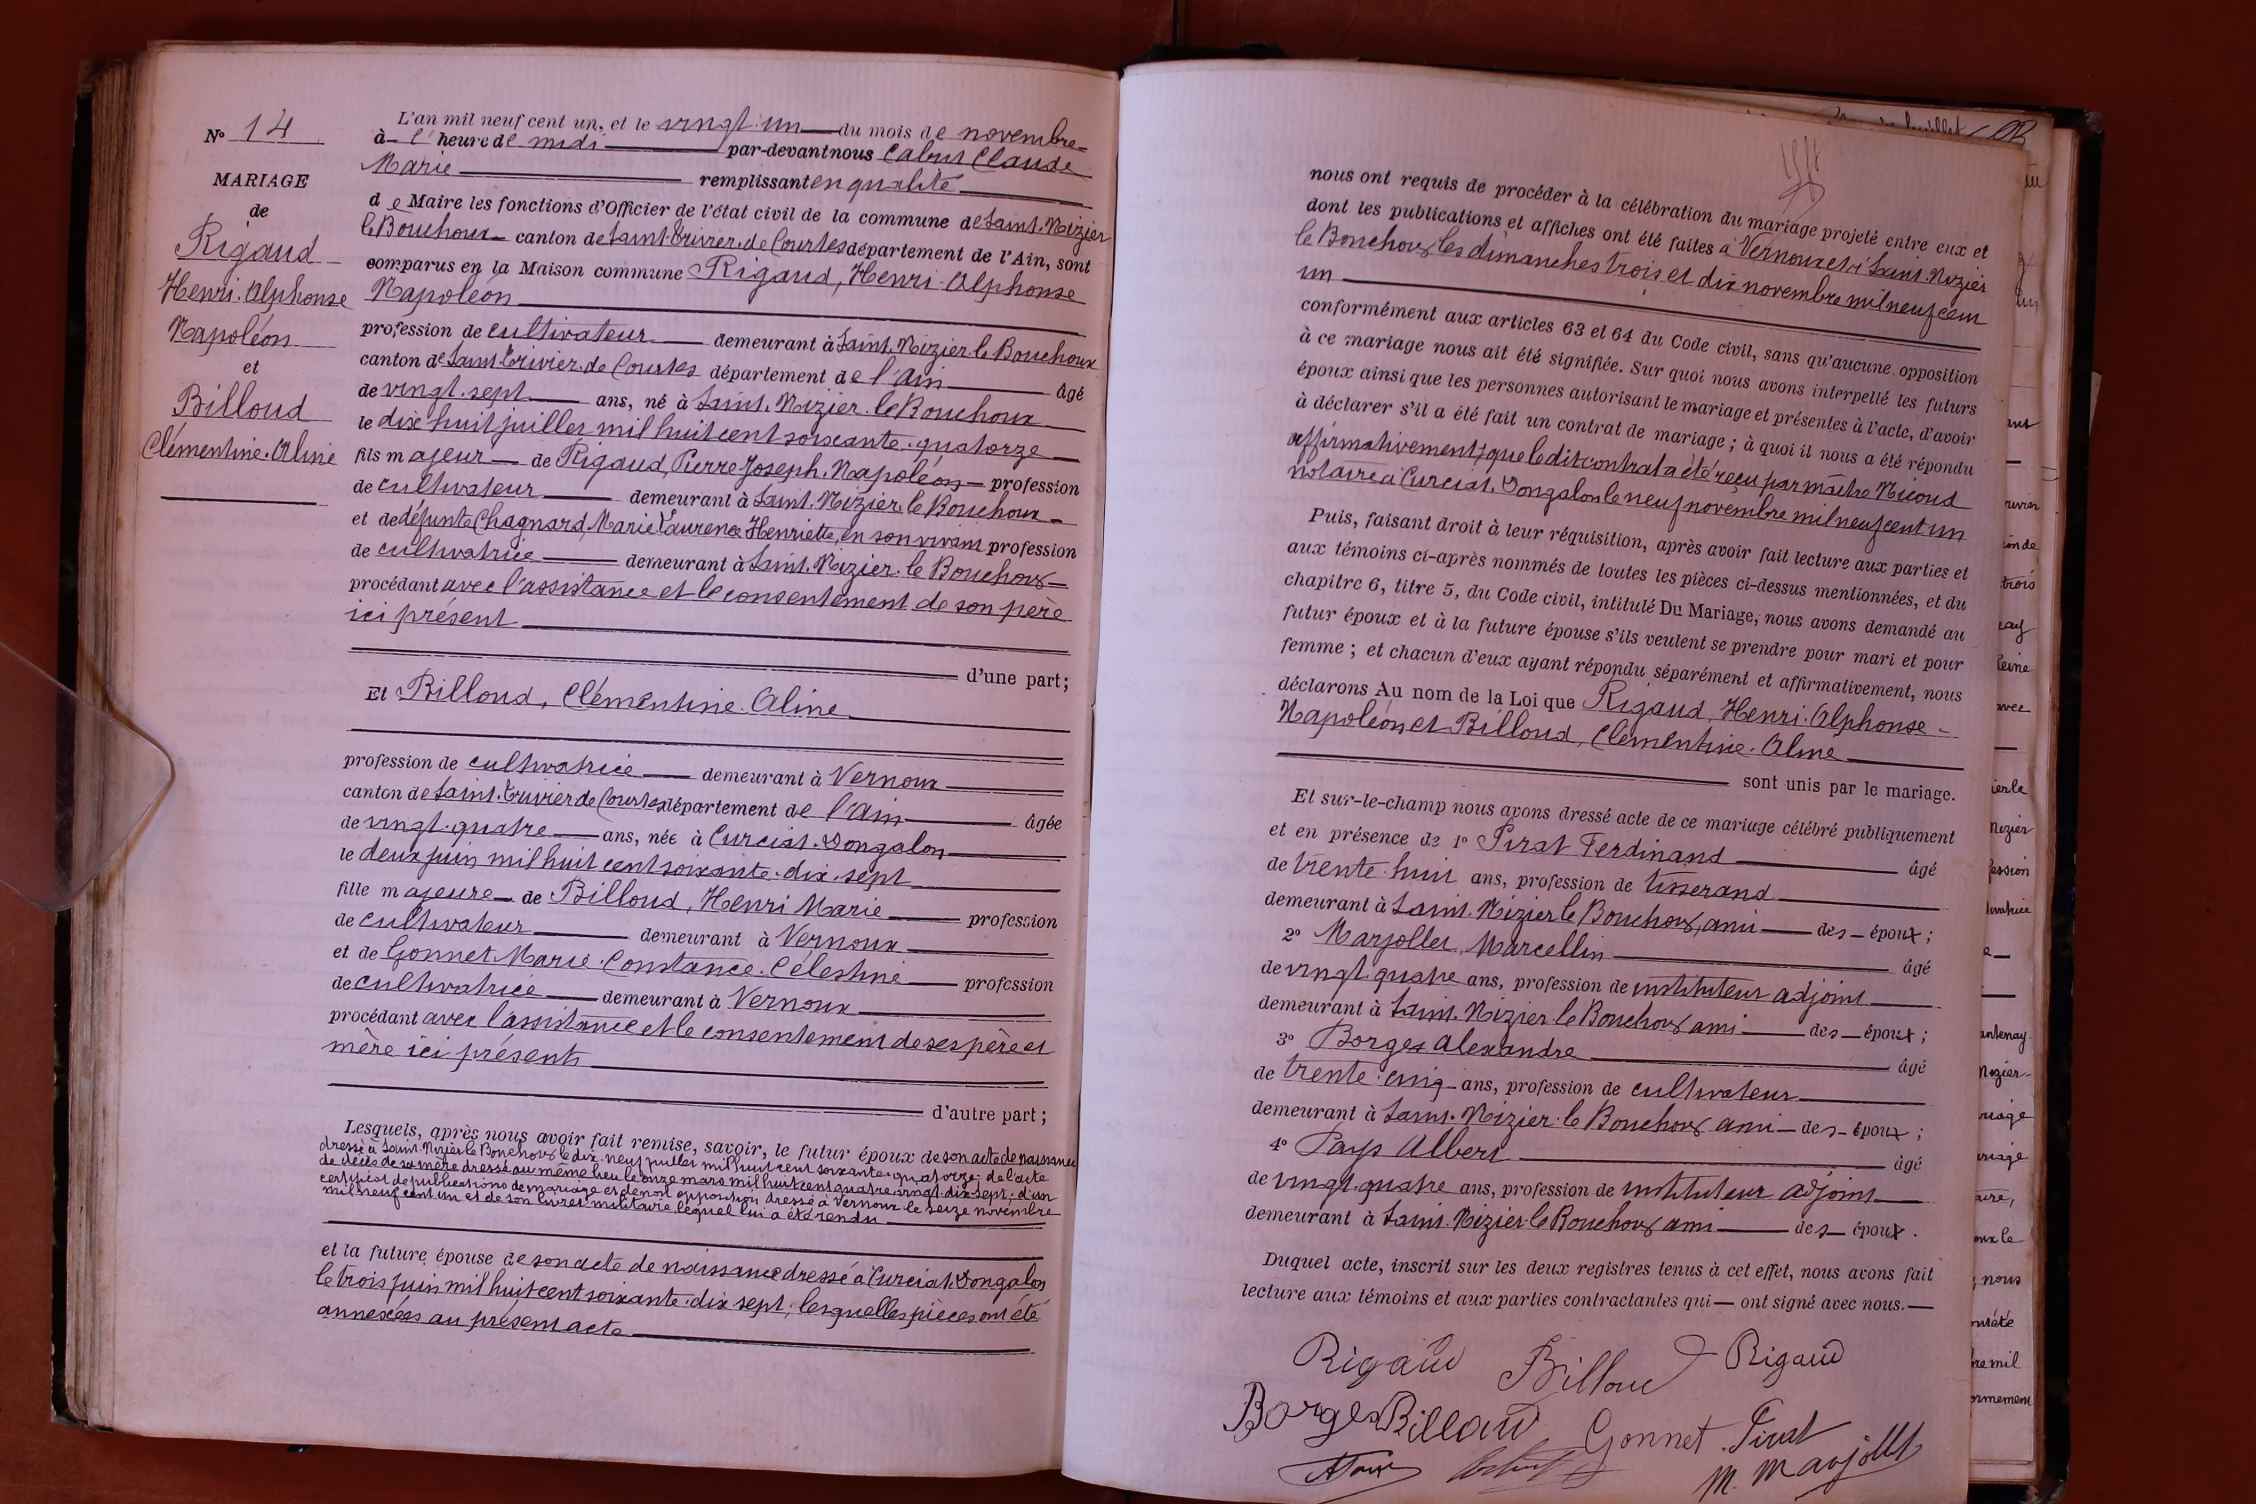 N° 14
MARIAGE
de
Rigaud
Henri. Alphonse
Napoléon
et
Billoud
Clémentine. Aline
L'an mil neuf cent un, et le vingt-un du mois de novembre
à l'heure de midi par-devant nous Cabut Claude
Marie remplissant en qualité
de Maire les fonctions d'Officier de l'état civil de la commune de Saint-Nizier
le Bouchoux canton de Saint-Trivier-de Courtes département de l'Ain, sont
comparus en la Maison commune Rigaud, Henri-Alphonse
Napoléon
profession de cultivateur demeurant à Saint-Nizier le Bouchoux
canton de Saint Trivier-de Courtes département de l'Ain âgé
de vingt-sept ans, né à Saint-Nizier-le Bouchoux
le dix huit juillet mil huit cent soixante-quatorze
fils majeur de Rigaud, Pierre Joseph. Napoléon profession
de cultivateur demeurant à Saint-Nizier-le Bouchoux
et de défunte Chagnard, Marie Laurence Henriette, en son vivant profession
de cultivatrice demeurant à Saint-Nizier-le Bouchoux
procédant avec l'assistance et le consentement de son père
ici présent
d'une part;
Et Billoud, Clémentine-Aline
profession de cultivatrice demeurant à Vernoux
canton de Saint-Trivier de Courtes département de l'Ain âgée
de vingt-quatre ans, née à Curciat-Dongalon
le deux juin mil huit cent soixante-dix-sept
fille majeure de Billoud, Henri Marie profession
de cultivateur demeurant à Vernoux
et de Gonnet Marie-Constance-Célestine profession
de cultivatrice demeurant à Vernoux
procédant avec l'assistance et le consentement de ses père et
mère ici présents
d'autre part;
Lesquels, après nous avoir fait remise, savoir, le futur époux de son acte de naissance
dressé à Saint-Nizier le Bouchoux le dix-neuf juillet mil huit cent soixante-quatorze; de l'acte
de décès de sa mère dressé au même lieu le onze mars mil huit cent quatre-vingt-dix-sept; d'un
certificat de publications de mariage et de non opposition dressé à Vernoux le seize novembre
mil neuf cent un et de son livret militaire lequel lui a été rendu
et la future épouse de son acte de naissance dressé à Curciat-Dongalon
le trois juin mil huit cent soixante-dix sept; lesquelles pièces ont été
annexées au présent acte
nous ont requis de procéder à la célébration du mariage projeté entre eux et
dont les publications et affiches ont été faites à Vernoux et à Saint-Nizier
le Bouchoux les dimanches trois et dix novembre mil neuf cent
un
conformément aux articles 63 et 64 du Code civil, sans qu'aucune opposition
à ce mariage nous ait été signifiée. Sur quoi nous avons interpellé les futurs
époux ainsi que les personnes autorisant le mariage et présentes à l'acte, d'avoir
à déclarer s'il a été fait un contrat de mariage; à quoi il nous a été répondu
affirmativement; que le dit contrat a été reçu par maître Nicoud
notaire à Curciat-Dongalon le neuf novembre mil neuf cent un
Puis, faisant droit à leur réquisition, après avoir fait lecture aux parties et
aux témoins ci-après nommés de toutes les pièces ci-dessus mentionnées, et du
chapitre 6, titre 5, du Code civil, intitulé Du Mariage, nous avons demandé au
futur époux et à la future épouse s'ils veulent se prendre pour mari et pour
femme; et chacun d'eux ayant répondu séparément et affirmativement, nous
déclarons Au nom de la Loi que Rigaud, Henri-Alphonse-
Napoléon et Billoud, Clémentine-Aline
sont unis par le mariage.
Et sur-le-champ nous avons dressé acte de ce mariage célébré publiquement
et en présence de 1° Pirat Ferdinand âgé
de trente-huit ans, profession de tisserand
demeurant à Saint-Nizier le Bouchoux, ami des époux;
2° Marjollet, Marcellin âgé
de vingt-quatre ans, profession de instituteur adjoint
demeurant à Saint-Nizier le Bouchoux ami des époux;
3° Borges Alexandre âgé
de trente-cinq ans, profession de cultivateur
demeurant à Saint-Nizier-le Bouchoux ami des époux;
4° Pays Albert âgé
de vingt-quatre ans, profession de instituteur adjoint
demeurant à Saint-Nizier-le Bouchoux ami des époux.
Duquel acte, inscrit sur les deux registres tenus à cet effet, nous avons fait
lecture aux témoins et aux parties contractantes qui ont signé avec nous.
Rigaud Billoud Rigaud
Borges Billoud Gonnet Pirat
M. Marjollet